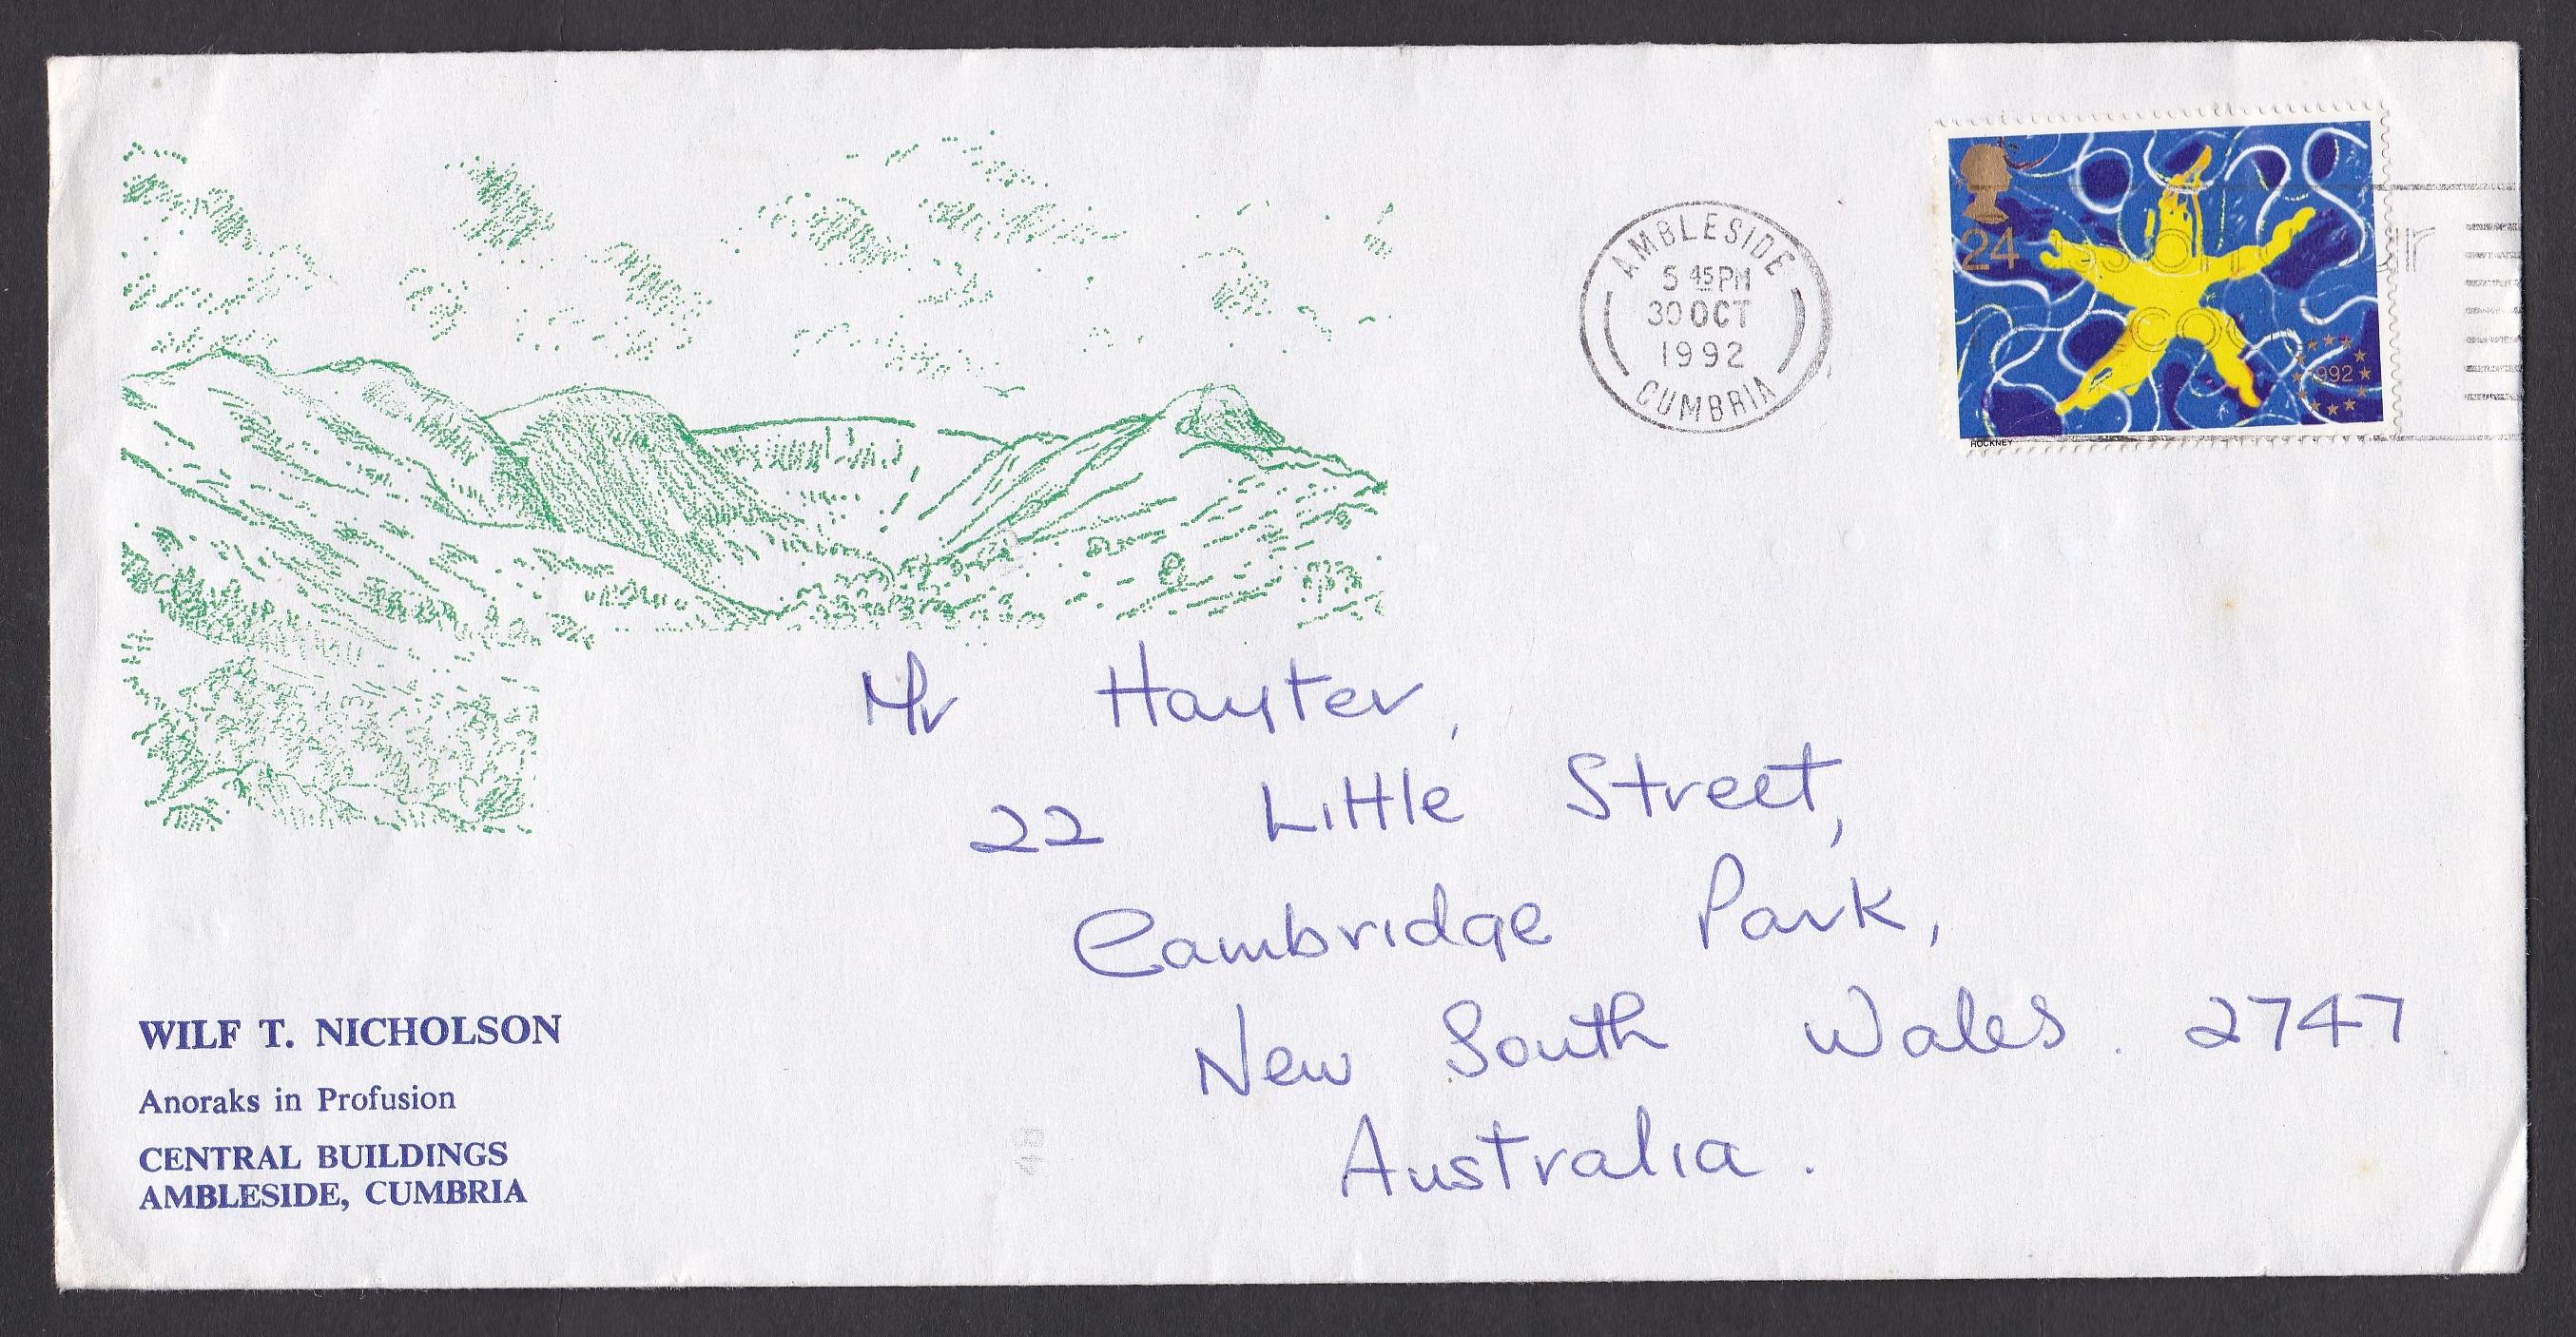 AMBLESIDE
5 45PM
30 OCT
1992
CUMBRIA
24
1992
HOCKNEY
Mr Hayter,
22 Little Street,
Cambridge Park,
New South Wales. 2747.
Australia.
WILF T. NICHOLSON
Anoraks in Profusion
CENTRAL BUILDINGS
AMBLESIDE, CUMBRIA